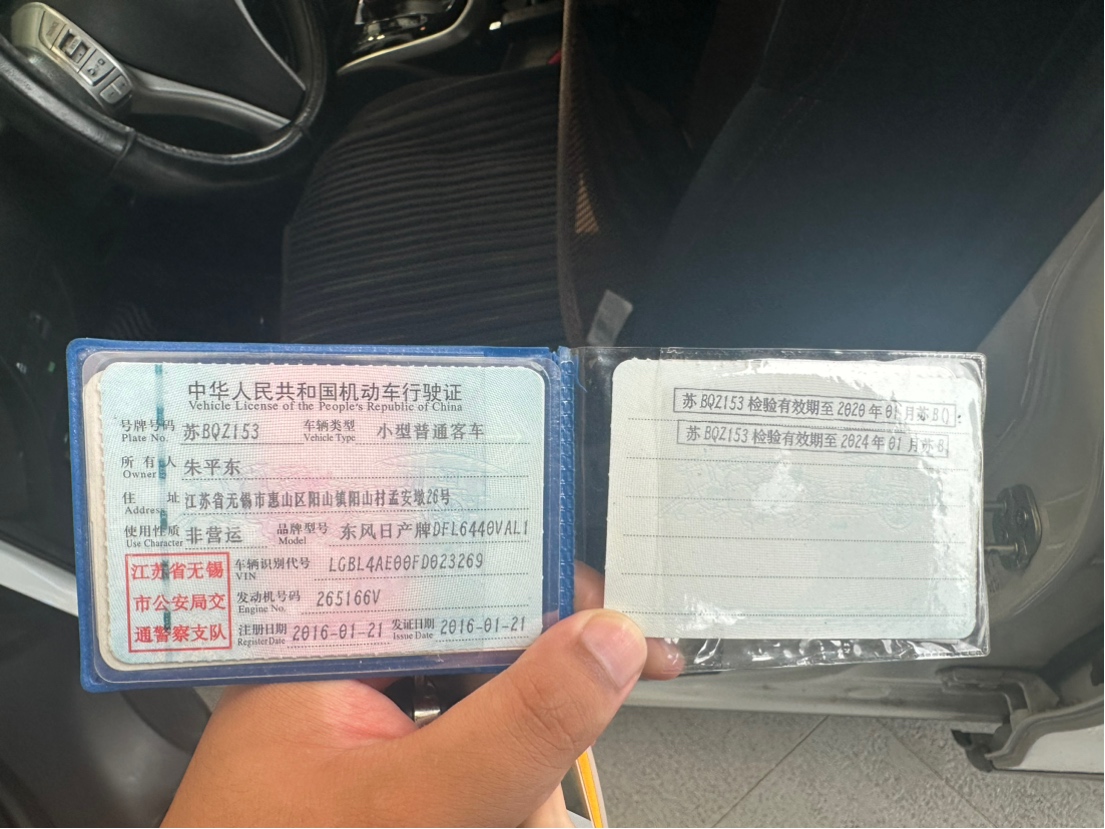 中华人民共和国机动车行驶证
Vehicle License of the People's Republic of China
号牌号码 苏BQZ153 车辆类型 小型普通客车
Plate No. Vehicle Type
所有人 朱平东
Owner
住址 江苏省无锡市惠山区阳山镇阳山村孟安墩26号
Address
使用性质 非营运 品牌型号 东风日产牌DFL6440VAL1
Use Character Model
江苏省无锡
市公安局交
通警察支队
车辆识别代号 LGBL4AE00FD023269
VIN
发动机号码 265166V
Engine No.
注册日期 2016-01-21 发证日期 2016-01-21
Register Date Issue Date
苏BQZ153检验有效期至2020年01月苏B()
苏BQZ153检验有效期至2024年01月苏B